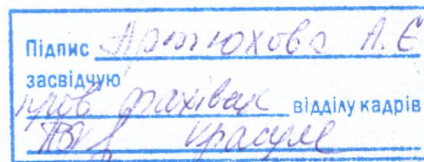 Підпис Артюхова А.Є
засвідчую
пров фахівець відділу кадрів